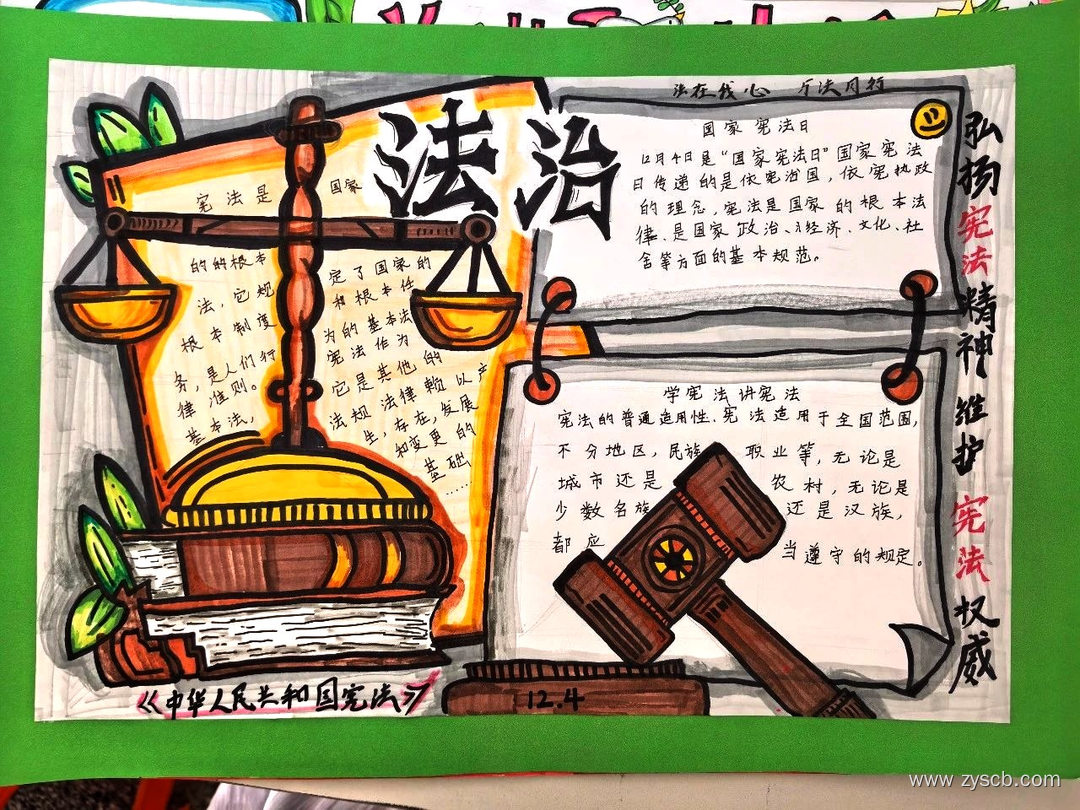 法治
法在我心 万法同行
国家宪法日
12月4日是“国家宪法日”国家宪法
日传递的是依宪治国，依宪执政
的理念，宪法是国家的根本法
律、是国家政治、经济、文化、社
会等方面的基本规范。
宪法是 国家
的的根本 定了国家的
法，它规 和根本任
根本制度 为的基本法
务，是人们行 宪法作为
律准则。 它是其他的
基本法， 法规法律赖以产
生，存在，发展
和变更的
基础……
学宪法讲宪法
宪法的普通适用性、宪法适用于全国范围，
不分地区，民族 职业等，无论是
城市还是 农村，无论是
少数名族 还是汉族，
都应 当遵守的规定。
弘扬宪法精神维护宪法权威
《中华人民共和国宪法》
12.4
www.zyscb.com